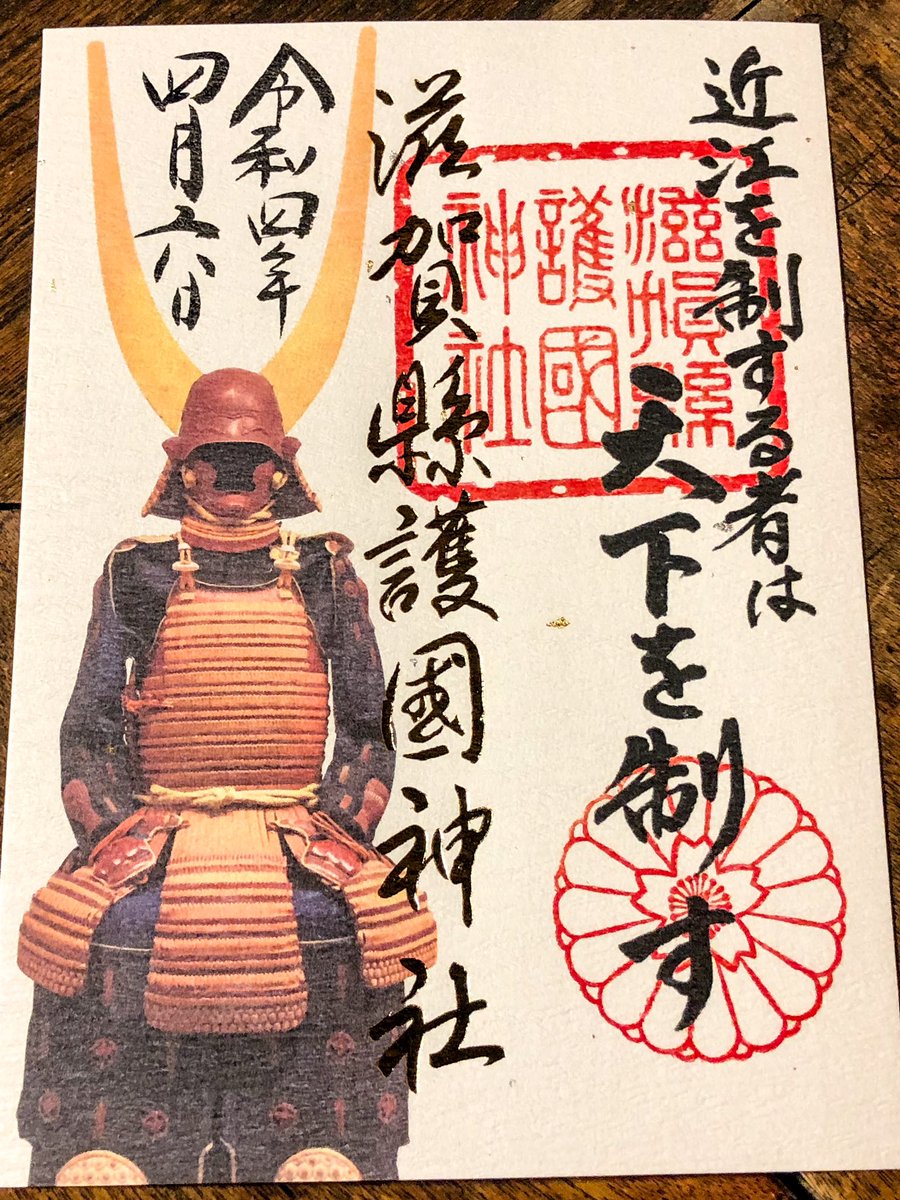 近江を制する者は
天下を制す
滋賀縣
護國
神社
滋賀縣護國神社
令和四年
四月六日